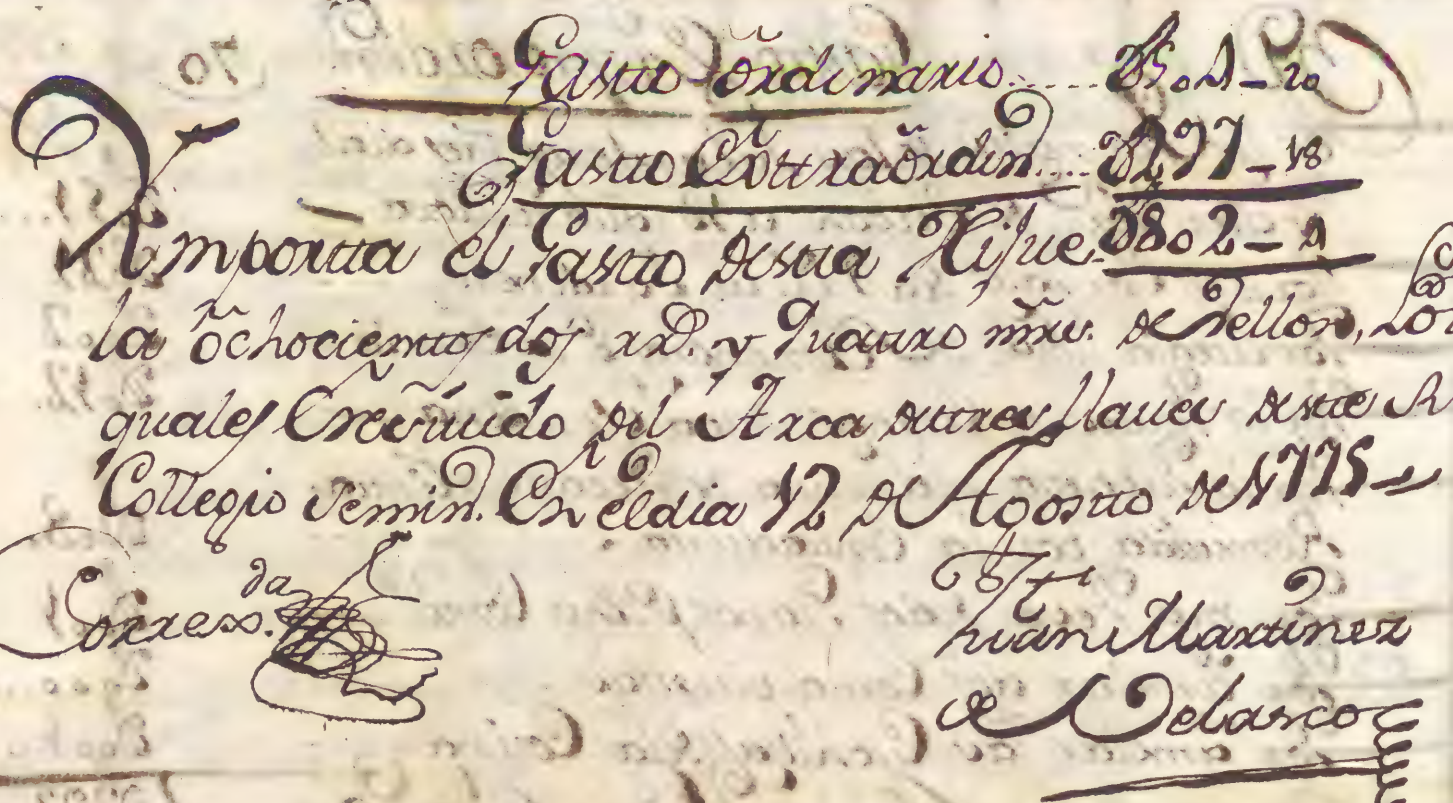 Gastto ordinario..... 504-20
Gastto Exttraordin.... 297-18
Ymportta el Gastto destta Hijue- 802-4
la ochocienttos dos rrs. y quattro mrs. de Vellon, Los
quales E reciuido del Arca dettres llaues destte R
Collegio Semin. En el dia 12 de Agostto de 1775
Correx.da
Juan Martinez
de Velasco